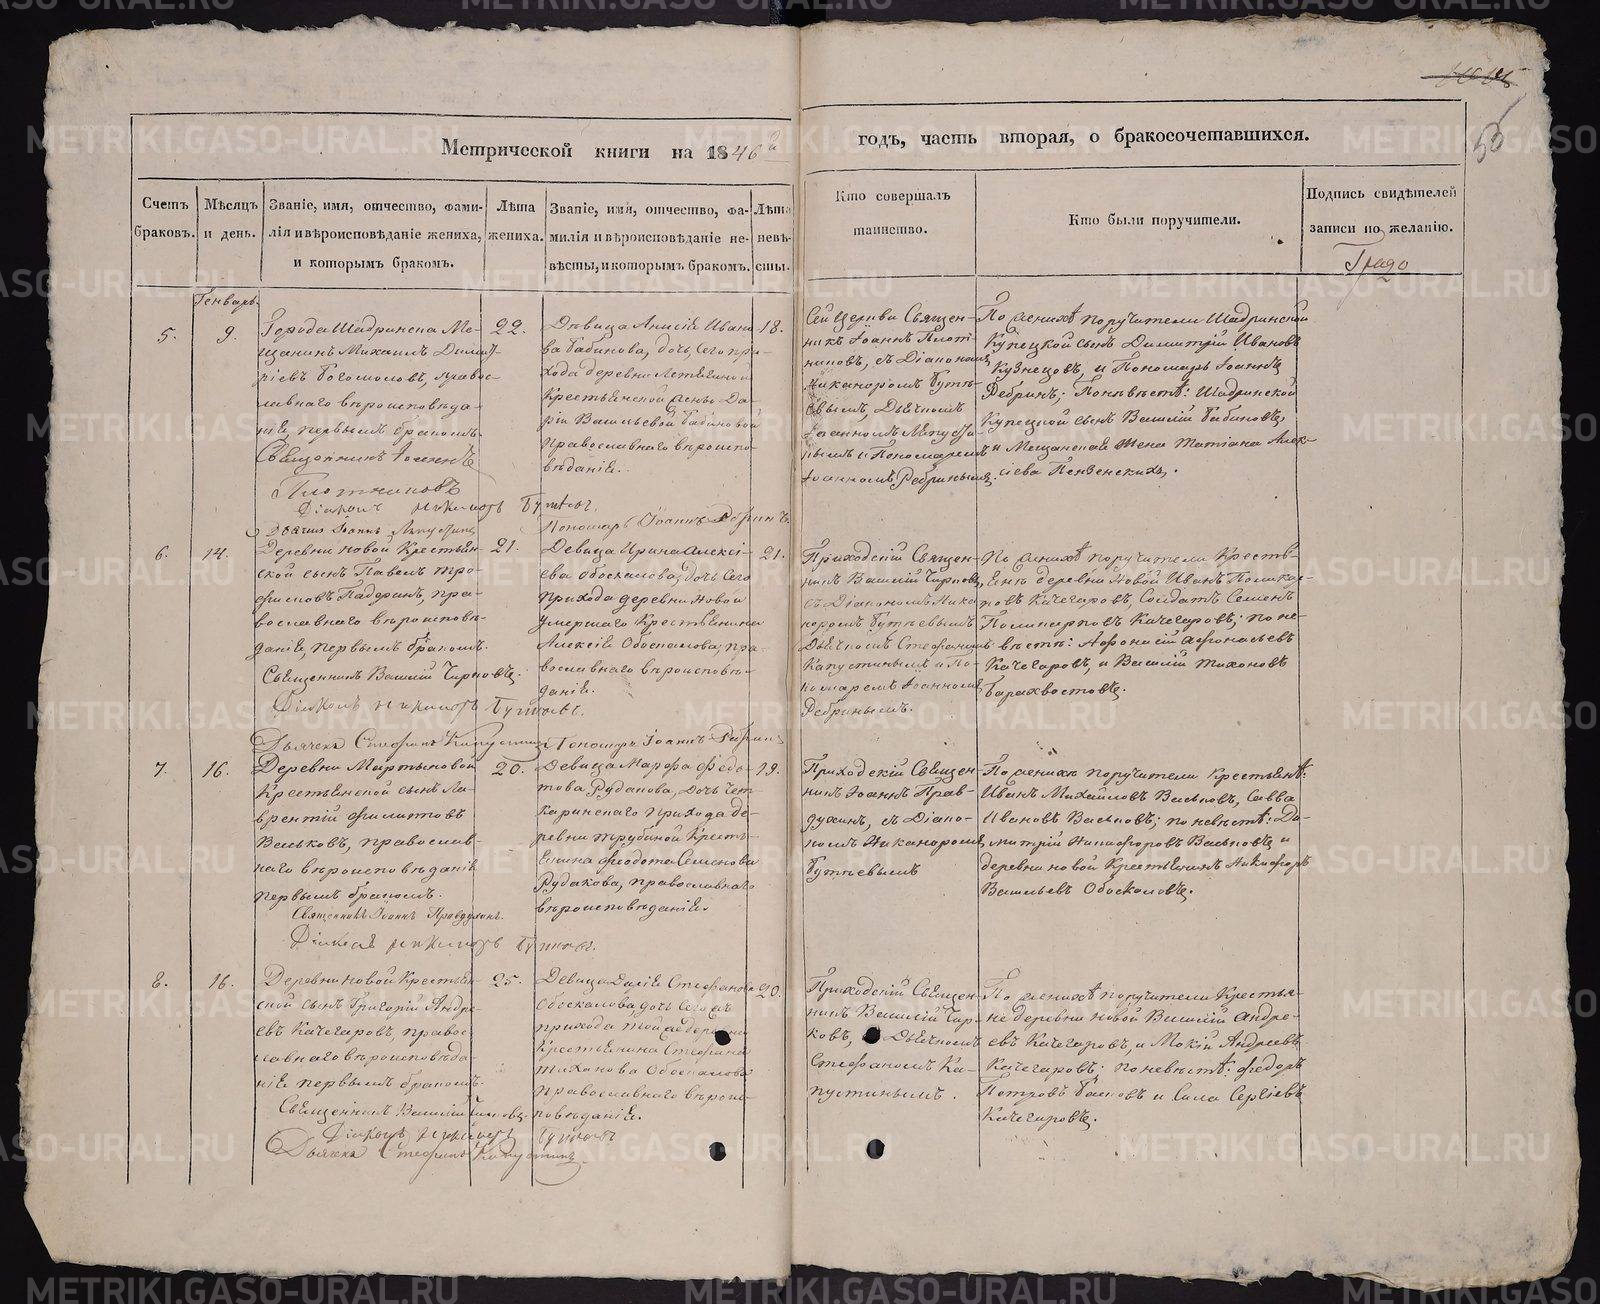 Метрической книги на 1846й
годъ, часть вторая, о бракосочетавшихся.
Счетъ браковъ.
Мѣсяцъ и день.
Званіе, имя, отчество, фами-
лія и вѣроисповѣданіе жениха,
и которымъ бракомъ.
Лѣта
жениха.
Званіе, имя, отчество, фа-
милія и вѣроисповѣданіе не-
вѣсты, и которымъ бракомъ.
Лѣта
невѣ-
сты.
Кто совершалъ
таинство.
Кто были поручители.
Подпись свидѣтелей
записи по желанію.
Генварь.
5.
9.
Города Шадринска Мѣ-
щанинъ Михаилъ Димит-
ріевъ Богомоловъ, правос-
лавнаго вѣроисповѣда-
нія, первымъ бракомъ.
Священникъ Іоаннъ
Плотниковъ
Діаконъ Никаноръ Бутѣевъ
Дьячекъ Іоаннъ Капустинъ
22.
Дѣвица Анисія Ивано-
ва Бабинова, дочь сего при-
хода деревни
Крестьянской жены Да-
ріи Васильевой Бабиновой
православнаго вѣроиспо-
вѣданія.
Пономарь Іоаннъ Ребринъ
18.
Сей Церкви Священ-
никъ Іоаннъ Плот-
никовъ, съ Діакономъ
Никаноромъ Бутѣ-
евымъ, Дьячкомъ
Іоанномъ Капусти-
нымъ и Пономаремъ
Іоанномъ Ребринымъ.
По женихѣ поручители Шадринской
Купецкой сынъ Димитрій Ивановъ
Кузнецовъ, и Пономарь Іоаннъ
Ребринъ; По невѣстѣ: Шадринской
Купецкой сынъ Василій Бабиновъ,
и Мещанская жена Татіана Алек-
сіева Пензенскихъ.
6.
14.
Деревни Новой Крестьян-
ской сынъ Павелъ Тро-
фимовъ Падеринъ, пра-
вославнаго вѣроисповѣ-
данія, первымъ бракомъ.
Священникъ Василій Чирковъ.
Діаконъ Никаноръ Бутѣевъ.
Дьячекъ Стефанъ Капустинъ
21.
Девица Ирина Алексі-
ева Обоскалова, дочь сего
прихода деревни Новой
умершаго Крестьянина
Алексія Обоскалова, пра-
вославнаго вѣроисповѣ-
данія.
Пономарь Іоаннъ Ребринъ
21.
Приходскій Священ-
никъ Василій Чирковъ,
съ Діакономъ Ника-
норомъ Бутѣевымъ
Дьячкомъ Стефаномъ
Капустинымъ и По-
номаремъ Іоанномъ
Ребринымъ.
По женихѣ поручители Кресть-
яне деревни Новой Иванъ Поликар-
повъ Качегаровъ, Солдатъ Семенъ
Поликарповъ Качегаровъ; по не-
вѣстѣ: Афонасій Афонасьевъ
Качегаровъ, и Василій Тихоновъ
Барахвостовъ.
7.
16.
Деревни Мартыновой
Крестьянской сынъ Ла-
врентій Филиповъ
Васьковъ, православ-
наго вѣроисповѣданія
первымъ бракомъ.
Священникъ Іоаннъ Правдухинъ.
Діаконъ Никаноръ Бутѣевъ.
20.
Девица Марфа Федо-
това Рудакова, дочь Чет-
каринскаго прихода де-
ревни Трубиной Кресть-
янина Феодота Семенова
Рудакова, православнаго
вѣроисповѣданія.
19.
Приходскій Священ-
никъ Іоаннъ Прав-
духинъ, съ Діако-
номъ Никаноромъ
Бутѣевымъ
По женихѣ поручители Крестьяне:
Иванъ Михайловъ Васьковъ, Савва
Ивановъ Васьковъ; по невѣстѣ: Ди-
митрій Никифоровъ Васьковъ и
деревни Новой Крестьянинъ Никифоръ
Васильевъ Обоскаловъ.
8.
16.
Деревни Новой Крестьян-
ской сынъ Григорій Андре-
евъ Качегаровъ, правос-
лавнаго вѣроисповѣда-
нія первымъ бракомъ.
Священникъ Василій Чирковъ.
Діаконъ Никаноръ Бутѣевъ
Дьячекъ Стефанъ Капустинъ
25.
Девица Стефанова
Обоскалова, дочь сего жъ
прихода той же деревни
Крестьянина Стефана
Тиханова Обоскалова
православнаго вѣроис-
повѣданія.
20.
Приходскій Священ-
никъ Василій Чир-
ковъ, съ Дьячкомъ
Стефаномъ Ка-
пустинымъ.
По женихѣ поручители Крестья-
не деревни Новой Василій Андре-
евъ Качегаровъ, и Мокій Андреевъ
Качегаровъ; по невѣстѣ: Федоръ
Петровъ и Сила Сергіевъ
Качегаровъ.